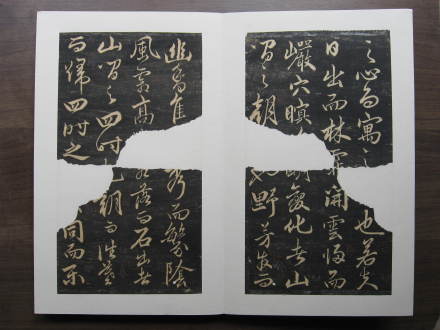 之心而寓之也若夫
日出而林霏開雲歸而
巖穴暝明變化者山
間之朝也野芳發而
幽香佳秀而繁陰
風氣高水落而石出者
山間之四時也朝而往暮
而歸四時之同而樂